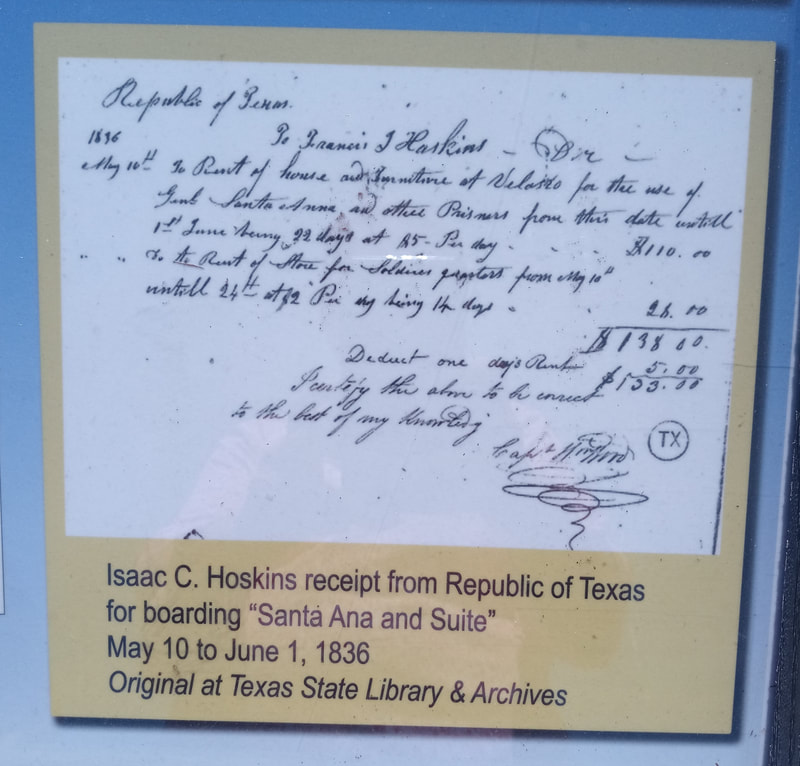 Republic of Texas.
1836 To Francis J Haskins - Dr -
May 10th To Rent of house and Furniture at Velasko for the use of
Genl Santa Anna and other Prisners from this date untill
1st June being 22 days at $5- Per day - - - $110.00
" " To to Rent of Store for Soldiers quarters from May 10th
untill 24th at $2 Per day being 14 days " 28.00
$138 00.
Deduct one days Rent 5.00
$133.00
I certify the above to be correct
to the best of my Knowledg
Capt
TX
Isaac C. Hoskins receipt from Republic of Texas
for boarding “Santa Ana and Suite”
May 10 to June 1, 1836
Original at Texas State Library & Archives